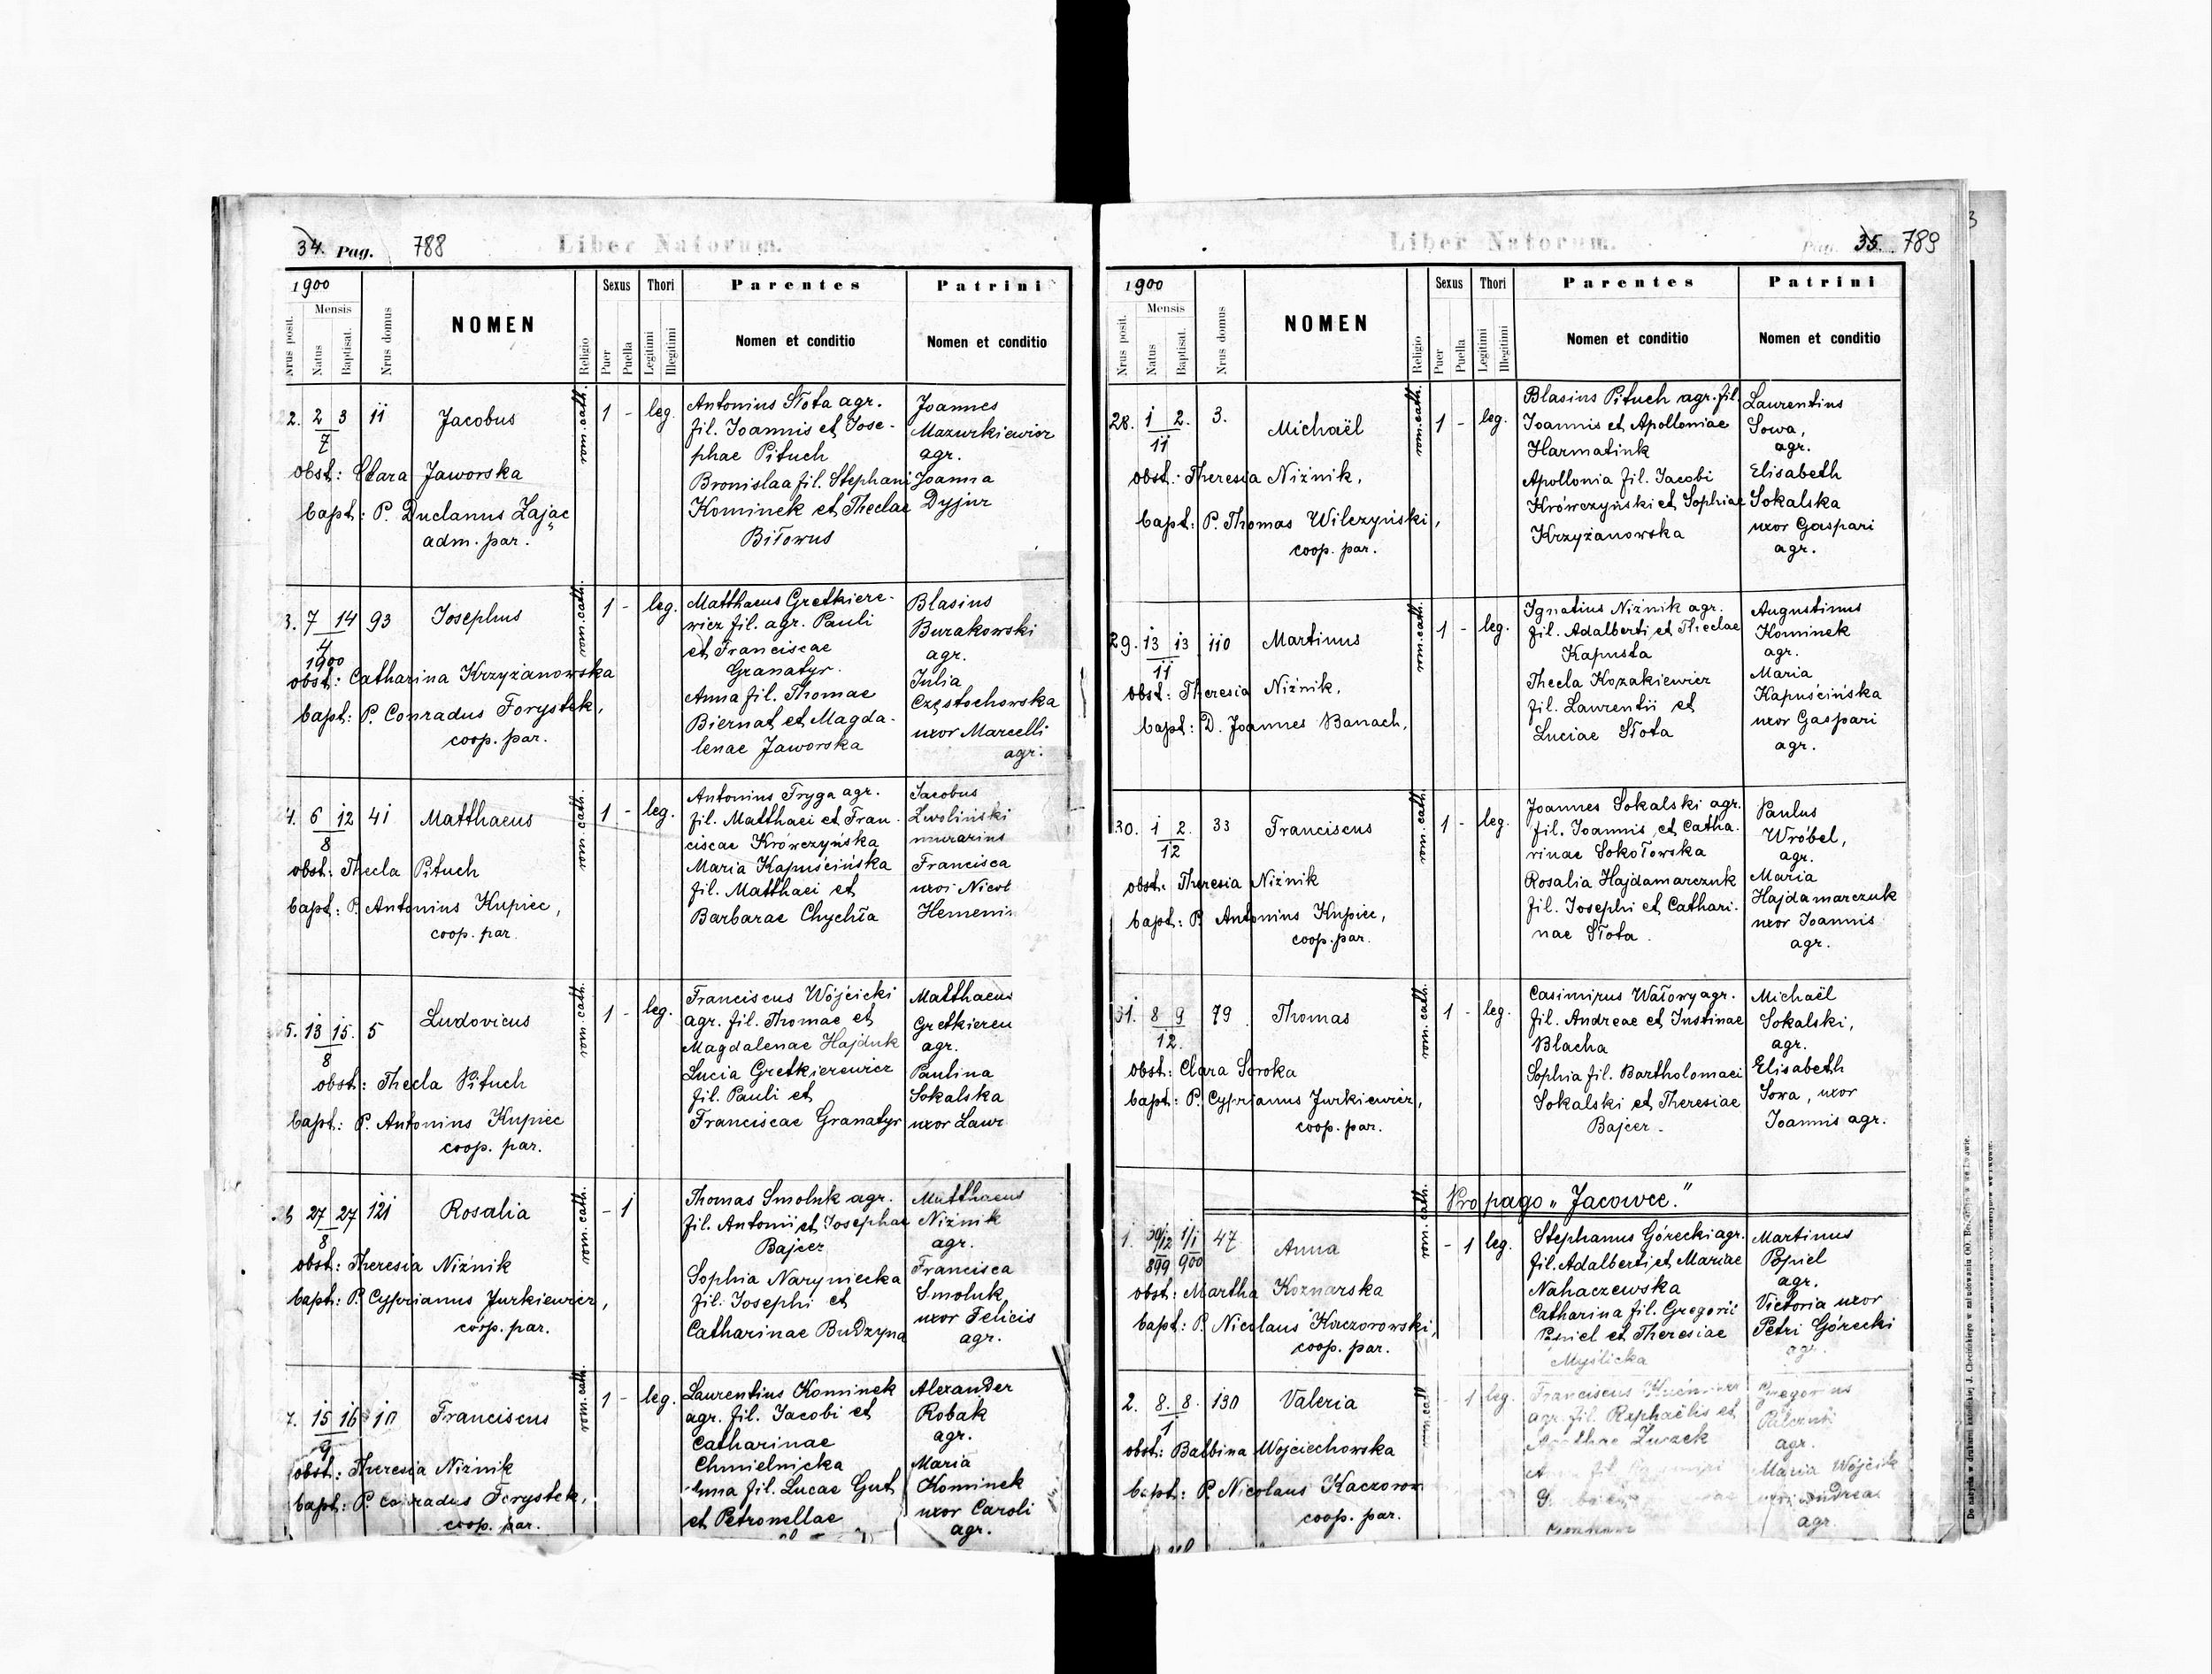 34. Pag. 788 Liber Natorum.
1900
Nrus posit. Mensis Natus Baptisat. Nrus domus NOMEN Religio Sexus Puer Puella Thori Legitimi Illegitimi Parentes Nomen et conditio Patrini Nomen et conditio
2. 2 3 11 Jacobus rom. cath. 1 - leg. Antonius Słota agr. Joannes
7 fil. Joannis et Jose- Mazurkiewicz
phae Pituch agr.
obst: Clara Jaworska Bronislaa fil. Stephani Joanna
bapt: P. Duclanus Zając Kominek et Theclae Dyjur
adm. par. Biłowus
3. 7 14 93 Josephus rom. cath. 1 - leg. Matthaeus Gretkiere- Blasius
4 wicz fil. agr. Pauli Burakowski
1900 et Franciscae agr.
obst: Catharina Krzyżanowska Granatyr. Julia
bapt: P. Conradus Forystek, Anna fil. Thomae Częstochowska
coop. par. Biernat et Magda- uxor Marcelli
lenae Jaworska agr.
4. 6 12 41 Matthaeus rom. cath. 1 - leg. Antonius Fryga agr. Jacobus
8 fil. Matthaei et Fran- Zwoliński
ciscae Krówczyńska murarius
obst: Thecla Pituch Maria Kapuścińska Francisca
bapt: P. Antonius Kupiec, fil. Matthaei et
coop. par. Barbarae Chychła
5. 13 15. 5 Ludovicus rom. cath. 1 - leg. Franciscus Wójcicki Matthaeus
8 agr. fil. Thomae et
Magdalenae Hajduk agr.
obst: Thecla Pituch Lucia Gretkierewicz Paulina
bapt: P. Antonius Kupiec fil. Pauli et Sokalska
coop. par. Franciscae Granatyr uxor Laur
27 27 121 Rosalia rom. cath. - 1 Thomas Smoluk agr. Matthaeus
8 fil. Antonii et Josephae Niżnik
Bajcer agr.
obst: Theresia Niżnik Sophia Naryniecka Francisca
bapt: P. Cyprianus Jurkiewicz, fil. Josephi et Smoluk
coop. par. Catharinae Budzyna uxor Felicis
agr.
7. 15 16 10 Franciscus rom. cath. 1 - leg. Laurentius Kominek Alexander
9 agr. fil. Jacobi et Robak
Catharinae agr.
obst: Theresia Niżnik Chmielnicka Maria
bapt: P. Conradus Forystek, fil. Lucae Gut Kominek
coop. par. et Petronellae uxor Caroli
agr.
Liber Natorum. Pag. 35. 789
1900
Nrus posit. Mensis Natus Baptisat. Nrus domus NOMEN Religio Sexus Puer Puella Thori Legitimi Illegitimi Parentes Nomen et conditio Patrini Nomen et conditio
28. 1 2. 3. Michaël rom. cath. 1 - leg. Blasius Pituch agr. fil. Laurentius
11 Joannis et Apolloniae Sowa,
Harmatiuk agr.
obst: Theresia Niżnik, Apollonia fil. Jacobi Elisabeth
bapt: P. Thomas Wilczyński, Krówczyński et Sophiae Sokalska
coop. par. Krzyżanowska uxor Gaspari
agr.
29. 13 13 110 Martinus rom. cath. 1 - leg. Ignatius Niżnik agr. Augustinus
11 fil. Adalberti et Theclae Kominek
Kapusta agr.
obst: Theresia Niżnik. Thecla Kozakiewicz Maria
bapt: D. Joannes Banach, fil. Laurentii et Kapuścińska
Luciae Słota uxor Gaspari
agr.
30. 1 2. 33 Franciscus rom. cath. 1 - leg. Joannes Sokalski agr. Paulus
12 fil. Joannis et Catha- Wróbel,
rinae Sokołowska agr.
obst. Theresia Niżnik Rosalia Hajdamarczuk Maria
bapt: P. Antonius Kupiec, fil. Josephi et Cathari- Hajdamarczuk
coop. par. nae Słota. uxor Joannis
agr.
31. 8 9 79 Thomas rom. cath. 1 - leg. Casimirus Watowy agr. Michaël
12. fil. Andreae et Justinae Sokalski,
Blacha agr.
obst: Clara Soroka Sophia fil. Bartholomaei Elisabeth
bapt: P. Cyprianus Jurkiewicz, Sokalski et Theresiae Sowa, uxor
coop. par. Bajcer. Joannis agr.
Propago „Jacowce."
1. 30/12 1/1 47 Anna rom. cath. - 1 leg. Stephanus Górecki agr. Martinus
899 900 fil. Adalberti et Mariae Popiel
Nahaczewska agr.
obst: Martha Koznarska Catharina fil. Gregorii Victoria uxor
bapt: P. Nicolaus Kaczorowski, Popiel et Theresiae Petri Górecki
coop. par. Myślicka agr.
2. 8. 8. 130 Valeria rom. cath. - 1 leg. Franciscus
1 agr. fil. Raphaëlis et
Żuraek agr.
obst: Balbina Wojciechowska Maria Wójcik
bapt: P. Nicolaus Kaczorow
coop. par. agr.